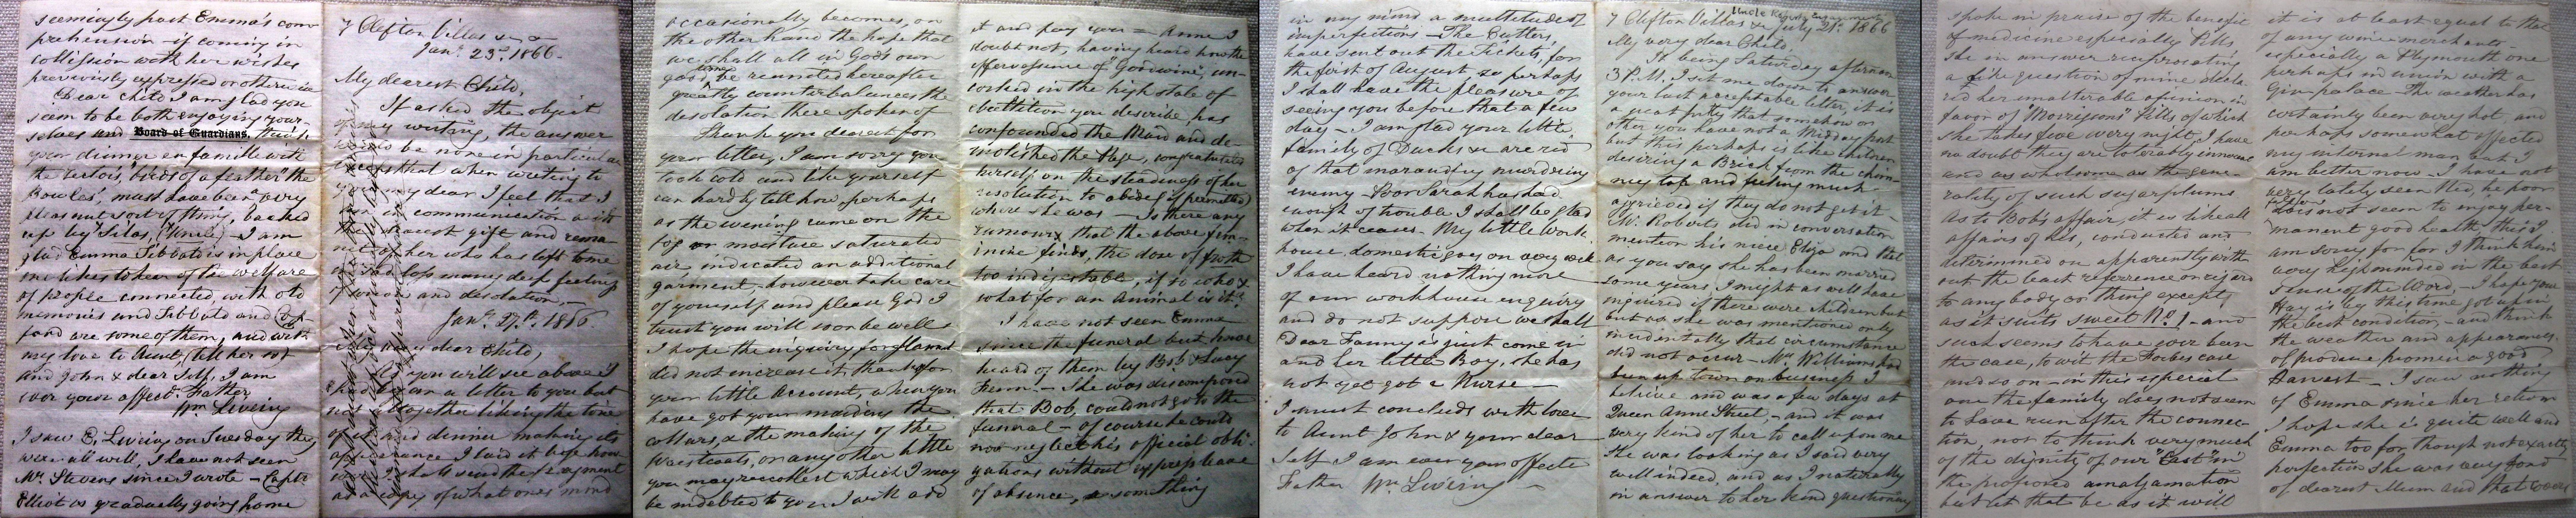 seemingly past Emma's com-
prehension – if coming in
collision with her wishes
previously expressed or otherwise
Dear Child I am glad you
seem to be both enjoying your-
selves and Board of Guardians,
your dinner en famille with
the birds of a feather the
Bowles', must have been a very
pleasant sort of thing, backed
up by Silas, (Uncle) – I am
glad Emma Tibbat is in place
one likes to hear of the welfare
of people connected, with old
memories and Tibbald and
ford are some of them, and with
my love to Aunt, (tell her so)
and John & dear Self, I am
ever your affect. Father
Wm Liveing
I saw E. Liveing on Tuesday they
were all well, I have not seen
Mr. Stevens since I wrote – Captn
Elliot is gradually going home
7 Clifton Villas
Jan. 23rd. 1866.
My dearest Child,
If asked the object
of my writing, the answer
would be none in particular
except that when writing to
you my dear I feel that I
am in communication with
the dearest gift and
of her who has left to me
loss many deep feelings
of and desolation, –
Jany. 27th. 1866.
My very dear Child,
you will see above I
a letter to you but
not altogether liking the tone
of it and dinner making its
appearance I laid it by
I shall send the fragment
as a copy of what ones mind
occasionally becomes, on
the other hand the hope that
we shall all in God's own
good time be reunited hereafter
greatly counterbalances the
desolation there spoken of
Thank you dearest for
your letter, I am sorry you
took cold and like yourself
can hardly tell how, perhaps
as the evening came on the
fog or moisture saturated
air, indicated an additional
garment, however take care
of yourself and please God I
trust you will soon be well &
I hope the inquiry for flannel
did not increase it, thanks for
your little Account, when you
have got your making the
collars, & the making of the
Waistcoats, or any other little
you may recollect which I may
be indebted to you I will add
it and pay you – Anne I
doubt not, having heard how the
effervescence of "Goodwine", un-
corked in the high state of
ebullition you describe, has
confounded the Maid and de-
molished the Page, congratulated
herself on the steadiness of her
resolution to abide (if permitted)
where she was – Is there any
rumour that the above fem-
inine finds, the dose of froth
too indigestible, if so who &
what for an Animal is it?
I have not seen Emma
since the funeral but have
heard of them by Bob & Lucy
Fenn – She was discomposed
that Bob, could not go to the
funeral – of course he could
not neglect his official obli-
gations without express leave
of absence, & something
in my mind a multitude of
imperfections – The Cutlers,
have sent out the Tickets, for
the first of August, so perhaps
I shall have the pleasure of
seeing you before that a few
day – I am glad your little
family of Ducks &c are rid
of that marauding murdering
enemy – Poor Sarah has had
enough of trouble I shall be glad
when it ceases – My little work-
house domestic goes on very well
I have heard nothing more
of our workhouse enquiry
and do not suppose we shall
Dear Fanny is just come in
and her little Boy, she has
not yet got a Nurse –
I must conclude with love
to Aunt John & your dear
Self I am ever your affecte
Father Wm Liveing –
7 Clifton Villas
July 21st. 1866
My very dear Child,
It being Saturday afternoon
3 P.M. I sit me down to answer
your last acceptable letter, it is
a great pity that somehow or
other you have not a Midday post
but this perhaps is like children
desiring a Brick from the chim-
ney top and feeling much
aggrieved if they do not get it –
Mr. Roberts did in conversation
mention his niece Eliza and that
as you say she has been married
some years, I might as well have
inquired if there were children but
but as she was mentioned only
incidentally that circumstance
did not occur – Mrs Williams had
been up town on business I
believe and was a few days at
Queen Anne Street, – and it was
very kind of her to call upon me
She was looking as I said very
well indeed, and as I naturally
in answer to her kind questioning
spoke in praise of the benefit
of medicine especially Pills
She in answer reciprocating
a like question of mine decla-
red her unalterable opinion in
favor of "Morrisons" Pills of which
she takes five every night, I have
no doubt they are tolerably innocent
and as wholesome as the gene-
rality of such sugarplums
As to Bob's affair, it is like all
affairs of his, conducted and
determined on apparently with
out the least reference or regard
to any body or thing except
as it suits sweet No. 1 – and
such seems to have ever been
the case, to wit the Forbes case
and so on – in this especial
one the family does not seem
to have run after the connec-
tion, nor to think very much
of the dignity of our "Cast" in
the proposed amalgamation
but let that be as it will
it is at least equal to that
of any wine merchants
especially a Plymouth one
perhaps in union with a
Gin palace – The weather has
certainly been very hot, and
perhaps somewhat affected
my internal man but I
am better now – I have not
very lately seen Ned, he poor
fellow does not seem to enjoy per-
manent good health, this I
am sorry for, for I think him
very highminded in the best
sense of the Word, – I hope your
Hay is by this time got up in
the best condition, – and think
the weather and appearances
of produce promise a good
Harvest – I saw nothing
of Emma since her return
I hope she is quite well and
Emma too for though not exactly
perfection she was very fond
of dearest Mum and that covers